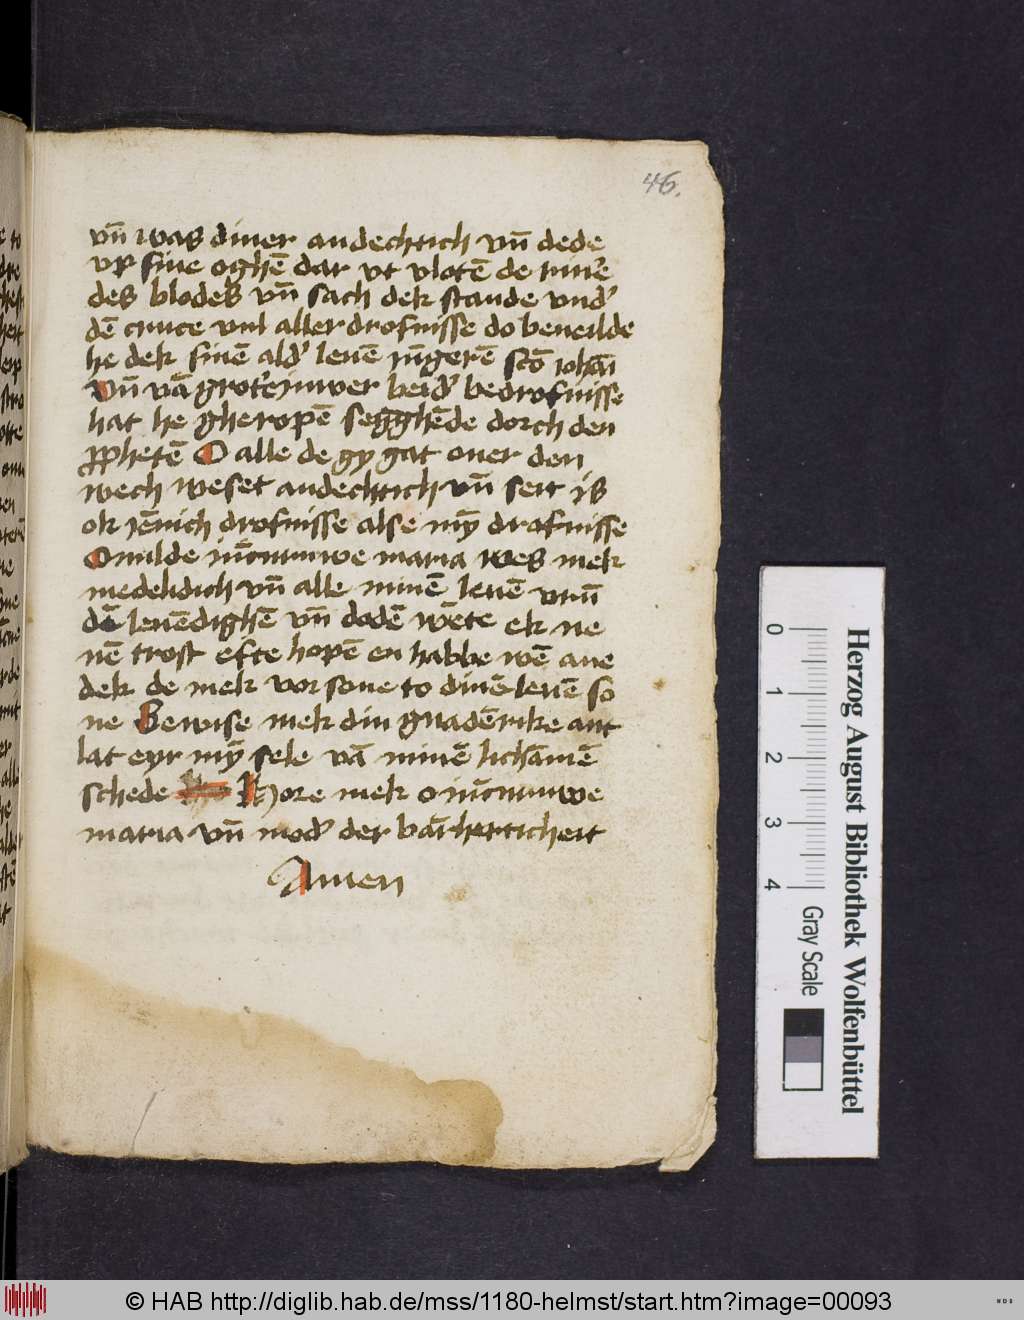 46.
vn̄ was diner andechtich vn̄ dede
vp sine oghē dar vt vloten de
des blodes vn̄ sach dek stande vnd'
dē cruce vul aller drofnisse do beueilde
he dek sinē ald' leuē iūgerē sc̄o iohāi
Vn̄ vā groter iuwer beid' bedrofnisse
hat he gheropē segghēde dorch den
ꝓphetē O alle de gy gat ouer den
wech weset andechtich vn̄ seit is
ok iēnich drofnisse alse mȳ drofnisse
O milde iūcvruwe maria wes mek
medelidich vn̄ alle minē leuē
dā leuēdighē vn̄ dodē wēte ek ne
nē trost efte hopē en habbe wē ane
dek de mek vorsone to dinē leuē so
ne Bewise mek din gnadērike ant
lat eyr mȳ sele vā minē lichāmē
schede Hore mek o iūcvruwe
maria vn̄ mod' der bārherticheit
Amen
Herzog August Bibliothek Wolfenbüttel
0 1 2 3 4
Gray Scale
© HAB http://diglib.hab.de/mss/1180-helmst/start.htm?image=00093